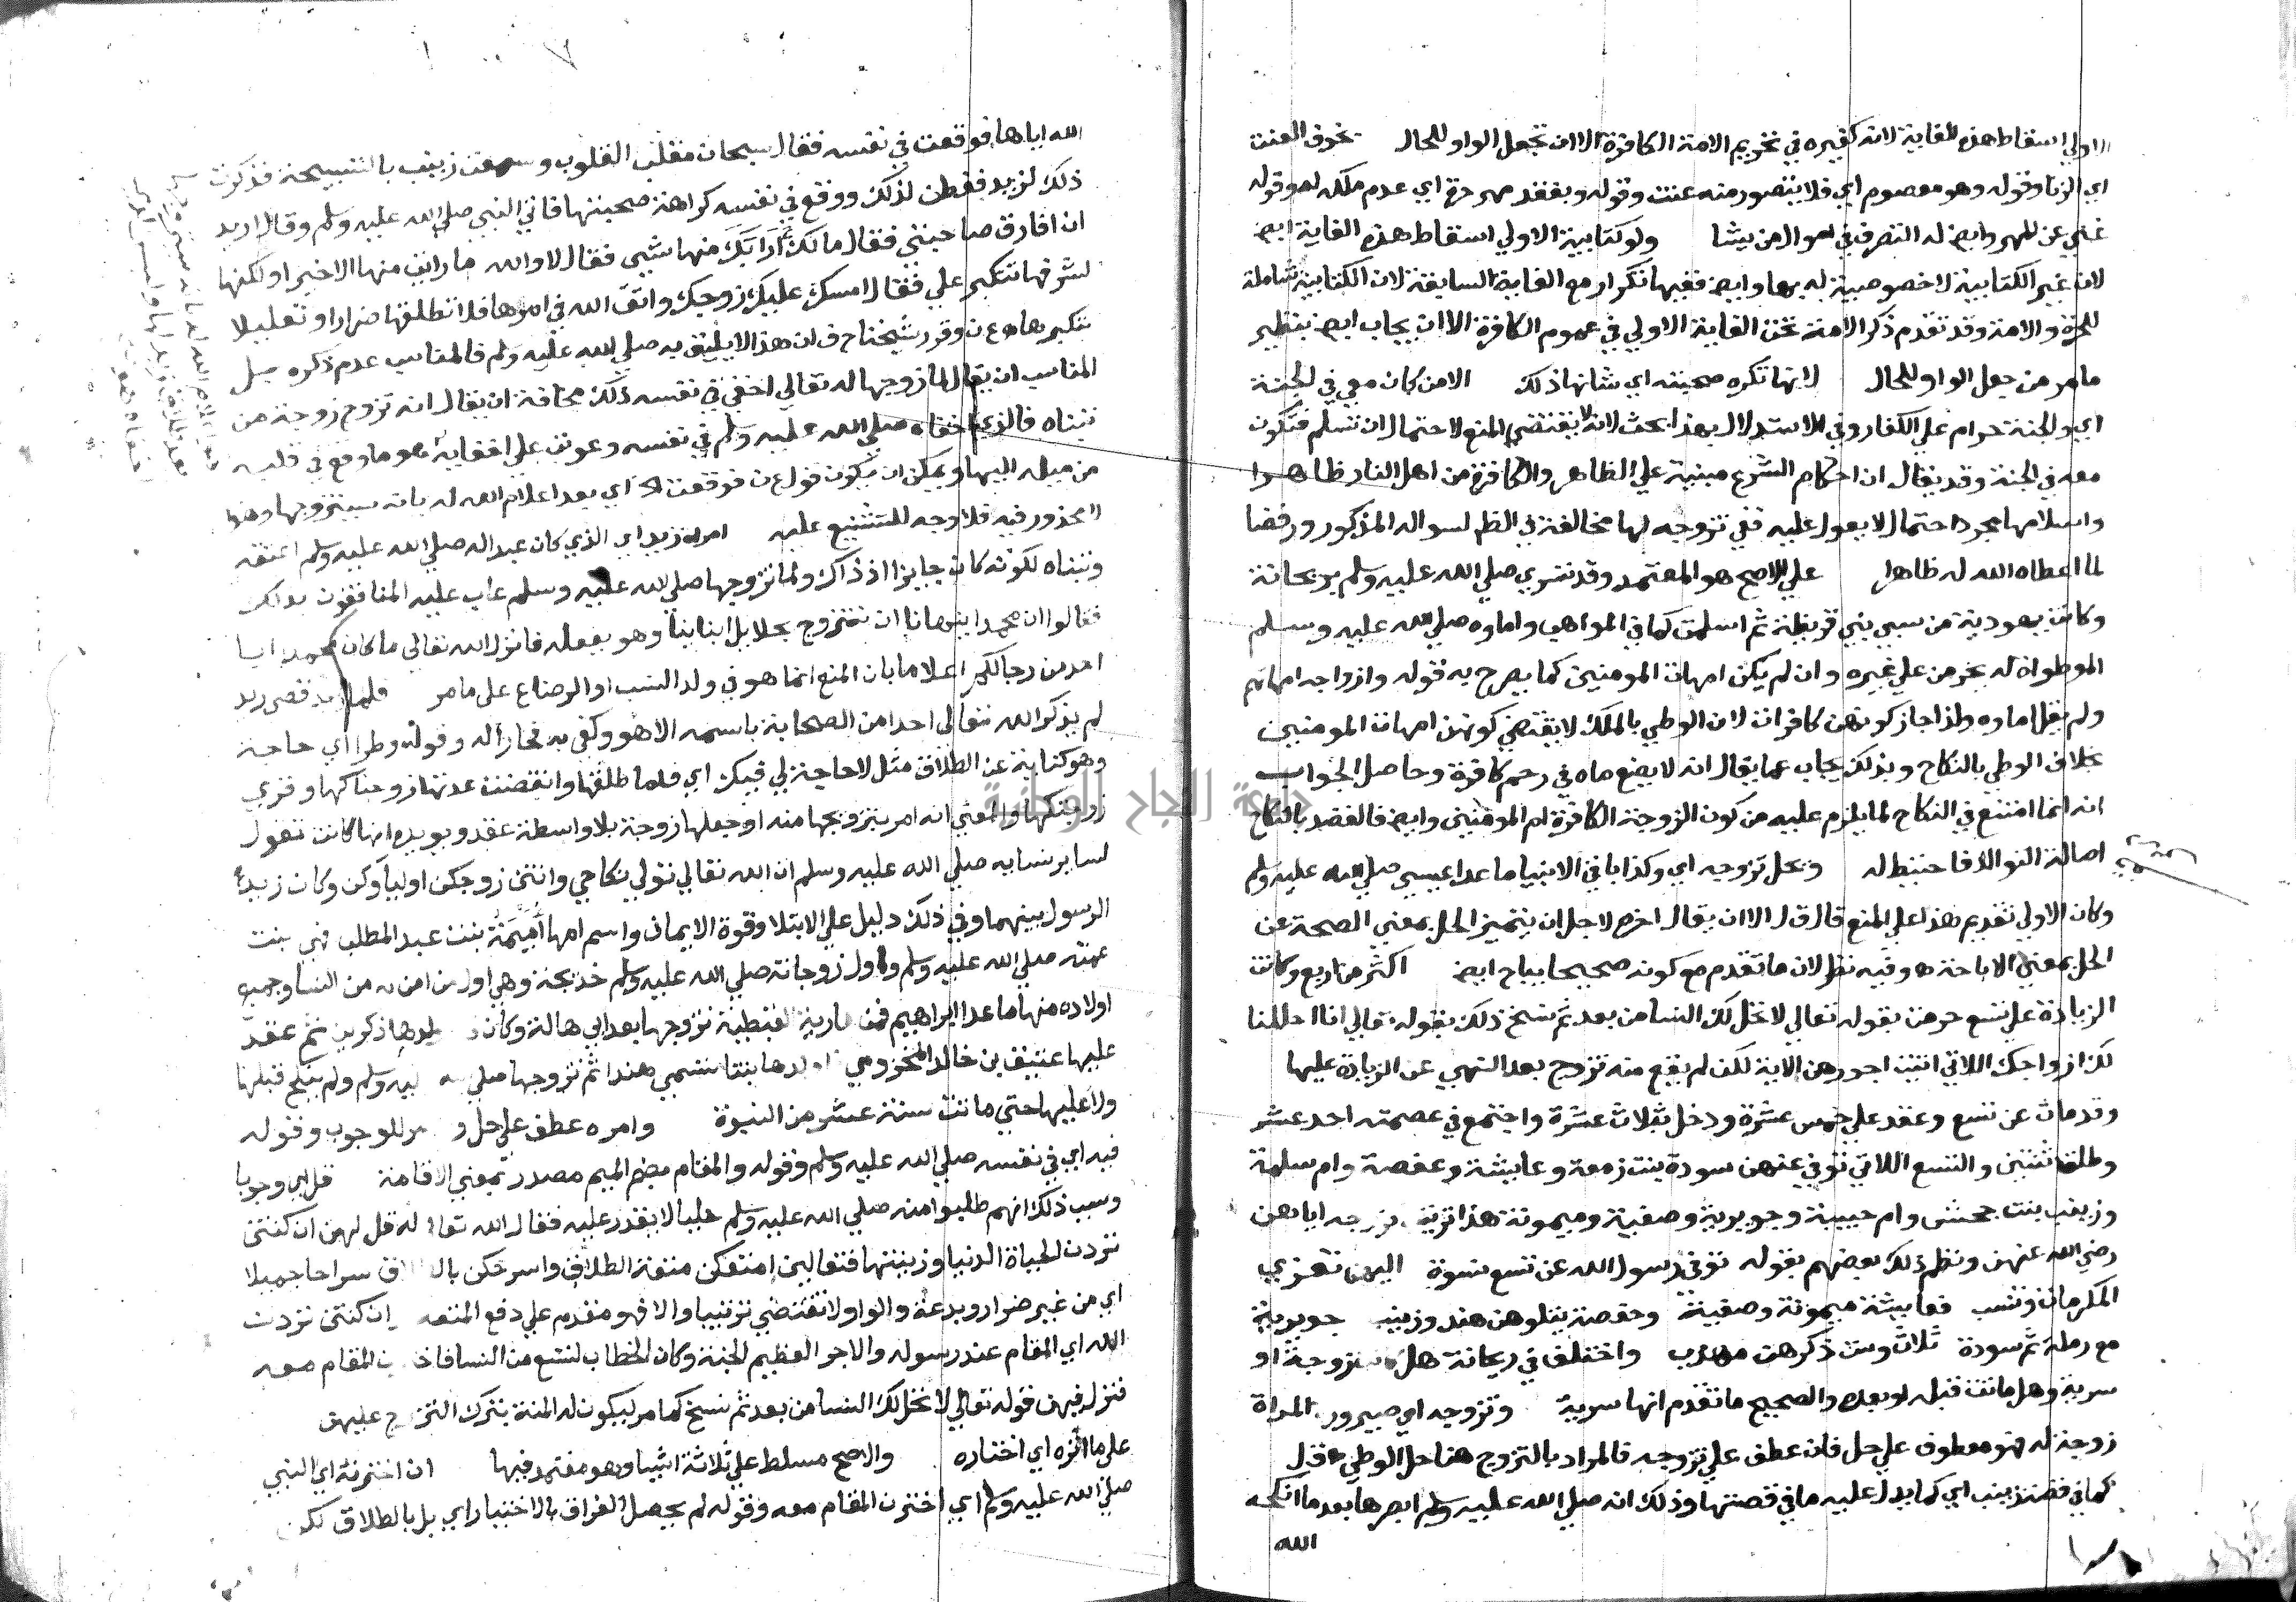 الاولي اسقاط هذه الغاية لانه كغيره في تحريم الامة الكافرة الا ان تجعل الواو للحال بخوف العنت
اي الزنا وقوله وهو معصوم اي فلا يتصور منه عنت وقوله وبفقد مهر حرة اي عدم ملكه له وقوله
غني عن المهر وايض له التصرف في اموال من يشا ولو كتابية الاولي اسقاط هذه الغاية ايض
لان غير الكتابية لا خصوصية له بها وايض ففيها تكرار مع الغاية السابقة لان الكتابية شاملة
للحرة والامة وقد تقدم ذكر الامة تحت الغاية الاولي في عموم الكافرة الا ان يجاب ايض بنظير
ما مر من جعل الواو للحال لانها تكره صحبته اي شانها ذلك الا من كان معي في الجنة
اي والجنة حرام علي الكفار وفي الاستدلال بهذا بحث لانه لا يقتضي المنع لاحتمال ان تسلم فتكون
معه في الجنة وقد يقال ان احكام الشرع مبنية علي الظاهر والكافرة من اهل النار ظاهرا
واسلامها مجرد احتمال لا يعول عليه ففي تزوجه لها مخالفة في الظم لسواله المذكور ورفضا
لما اعطاه الله له ظاهرا علي الاصح هو المعتمد وقد تسري صلي الله عليه وسلم بريحانة
وكانت يهودية من سبي بني قريظة ثم اسلمت كما في المواهب واماوه صلي الله عليه وسلم
الموطواة له يحرمن علي غيره وان لم يكن امهات المومنين كما يصرح به قوله وازواجه امهاتهم
ولم يقل اماوه ولذا جاز كونهن كافرات لان الوطي بالملك لا يقتضي كونهن امهات المومنين
بخلاف الوطي بالنكاح وبذلك يجاب عما يقال انه لا يضع ماه في رحم كافرة وحاصل الجواب
انه انما امتنع في النكاح لما يلزم عليه من كون الزوجة الكافرة ام المومنين وايض فالقصد بالنكاح
اصالة التوالد فاحتيط له وتحل تزوجه اي وكذا باقي الانبيا ما عدا عيسي صلي الله عليه وسلم
وكان الاولي تقديم هذا علي المنع قال ق ل الا ان يقال اخره لاجل ان يتميز الحل بمعني الصحة عن
الحل بمعني الاباحة ه وفيه نظر لان ما تقدم مع كونه صحيحا يباح ايض اكثر من اربع وكانت
الزيادة علي تسع حرمت بقوله تعالي لا تحل لك النسا من بعد ثم نسخ ذلك بقوله تعالي انا احللنا
لك ازواجك اللاتي اتيت اجورهن الاية لكن لم يقع منه تزوج بعد النهي عن الزيادة عليها
وقد مات عن تسع وعقد علي خمس عشرة ودخل بثلاث عشرة واجتمع في عصمته احد عشر
وطلق ثنتين والتسع اللاتي توفي عنهن سودة بنت زمعة وعايشة وحفصة وام سلمة
وزينب بنت جحش وام حبيبة وجويرية وصفية وميمونة هذا ترتيب تزوجه اياهن
رضي الله عنهن ونظم ذلك بعضهم بقوله توفي رسول الله عن تسع نسوة اليهن تعزي
المكرمات وتنسب فعايشة ميمونة وصفية وحفصة تتلوهن هند وزينب جويرية
مع رملة ثم سودة ثلاث وست ذكرهن مهذب واختلف في ريحانة هل كانت زوجة او
سرية وهل ماتت قبله او بعده والصحيح ما تقدم انها سرية وتزوجه اي صيرور المراة
زوجة له فهو معطوف علي حل فان عطف علي تزوجه فالمراد بالتزوج هنا حل الوطي ه ق ل
كما في قصة زينب اي كما يدل عليه ما في قصتها وذلك انه صلي الله عليه وسلم ابصرها بعد ما انكحه
الله
الله اياها فوقعت في نفسه فقال سبحان مقلب القلوب وسمعت زينب بالتسبيحة فذكرت
ذلك لزيد ففطن لذلك ووقع في نفسه كراهة صحبتها فاتي النبي صلي الله عليه وسلم وقال اريد
ان افارق صاحبتي فقال مالك ارابك منها شيي فقال لا والله ما رايت منها الا خيرا ولكنها
لشرفها تتكبر علي فقال امسك عليك زوجك واتق الله في امرها فلا تطلقها ضرارا وتعليلا
بتكبرها ه ع ن وقرر شيخنا ح ف ان هذا لا يليق به صلي الله عليه وسلم فالمناسب عدم ذكره بل
المناسب ان يقال لما زوجها له تعالي اخفي في نفسه ذلك مخافة ان يقال انه تزوج زوجة من
تبناه فالذي اخفاه صلي الله عليه وسلم في نفسه وعوتب علي اخفايه هو ما وقع في قلبه
من ميله اليها ويمكن ان يكون قول ع ن فوقعت الخ اي بعد اعلام الله له بانه سيتزوجها وهذا
لا محذور فيه فلا وجه للتشنيع عليه امراة زيد اي الذي كان عبدا له صلي الله عليه وسلم اعتقه
وتبناه لكونه كان جايزا اذ ذاك ولما تزوجها صلي الله عليه وسلم عاب عليه المنافقون بذلك
فقالوا ان محمدا ينهانا ان نتزوج بحلايل ابناينا وهو يفعله فانزل الله تعالي ما كان محمد ابا
احد من رجالكم اعلاما بان المنع انما هو في ولد النسب او الرضاع علي ما مر فلما قضي زيد
لم يذكر الله تعالي احدا من الصحابة باسمه الا هو وكفي به فخارا له وقوله وطرا اي حاجة
وهو كناية عن الطلاق مثل لا حاجة لي فيك اي فلما طلقها وانقضت عدتها زوجناكها وقري
زوجتكها والمعني انه امر بتزويجها منه او جعلها زوجة بلا واسطة عقد ويويده انها كانت تقول
لساير نسايه صلي الله عليه وسلم ان الله تعالي تولي نكاحي وانتن زوجكن اولياوكن وكان زيد
الرسول بينهما وفي ذلك دليل علي الابتلا وقوة الايمان واسم امها اميمة بنت عبد المطلب فهي بنت
عمته صلي الله عليه وسلم واول زوجاته صلي الله عليه وسلم خديجة وهي اول من امن به من النسا وجميع
اولاده منها ما عدا ابراهيم فمن مارية القبطية تزوجها بعد ابي هالة وكان ولدها ذكرين ثم عقد
عليها عتيق بن خالد المخزومي اولدها بنتا تسمي هندا ثم تزوجها صلي الله عليه وسلم ولم ينكح قبلها
ولا عليها حتي ماتت سنة عشر من النبوة وامره عطف علي حل و للوجوب وقوله
فيه اي في نفسه صلي الله عليه وسلم وقوله والمقام بضم الميم مصدر بمعني الاقامة قل اي وجوبا
وسبب ذلك انهم طلبوا منه صلي الله عليه وسلم حليا لا يقدر عليه فقال الله تعالي له قل لهن ان كنتن
تردن الحياة الدنيا وزينتها فتعالين امتعكن متعة الطلاق واسرحكن بالطلاق سراحا جميلا
اي من غير ضرار وبدعة والواو لا تقتضي ترتيبا والا فهو مقدم علي دفع المتعه ان كنتن تردن
الله اي المقام عند رسوله والاجر العظيم الجنة وكان الخطاب لتسع من النسا فاخترن المقام معه
فنزل فيهن قوله تعالي لا تحل لك النسا من بعد ثم نسخ كما مر ليكون له المنة بترك التزوج عليهن
علي ما اثره اي اختاره والاصح مسلط علي ثلاثة اشيا وهو معتمد فيها ان اخترنه اي النبي
صلي الله عليه وسلم اي اخترن المقام معه وقوله لم يحصل الفراق بالاختيار اي بل بالطلاق لكن
جامعة النجاح الوطنية